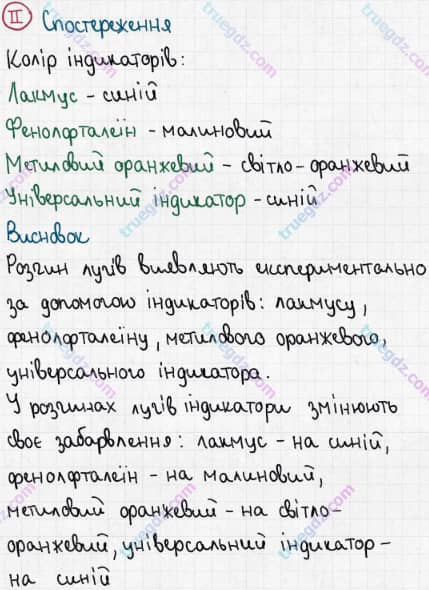 II Спостереження
Колір індикаторів:
Лакмус - синій
Фенолфталеїн - малиновий
Метиловий оранжевий - світло-оранжевий
Універсальний індикатор - синій
Висновок
Розчин лугів виявляють експериментально
за допомогою індикаторів: лакмусу,
фенолфталеїну, метилового оранжевого,
універсального індикатора.
У розчинах лугів індикатори змінюють
своє забарвлення: лакмус - на синій,
фенолфталеїн - на малиновий,
метиловий оранжевий - на світло-
оранжевий, універсальний індикатор -
на синій
truegdz.com
truegdz.com
truegdz.com
truegdz.com
truegdz.com
truegdz.com
truegdz.com
truegdz.com
truegdz.com
truegdz.com
truegdz.com